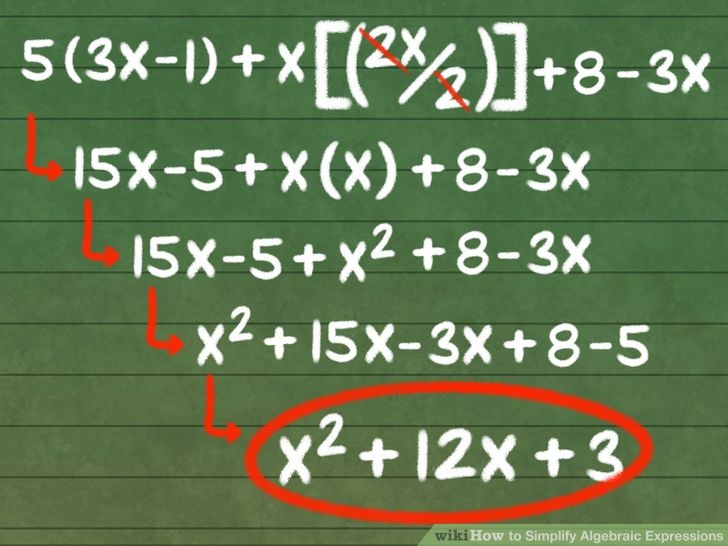 5(3x-1)+x[(2x/2)]+8-3x
15x-5+x(x)+8-3x
15x-5+x²+8-3x
x²+15x-3x+8-5
x²+12x+3
wikiHow to Simplify Algebraic Expressions